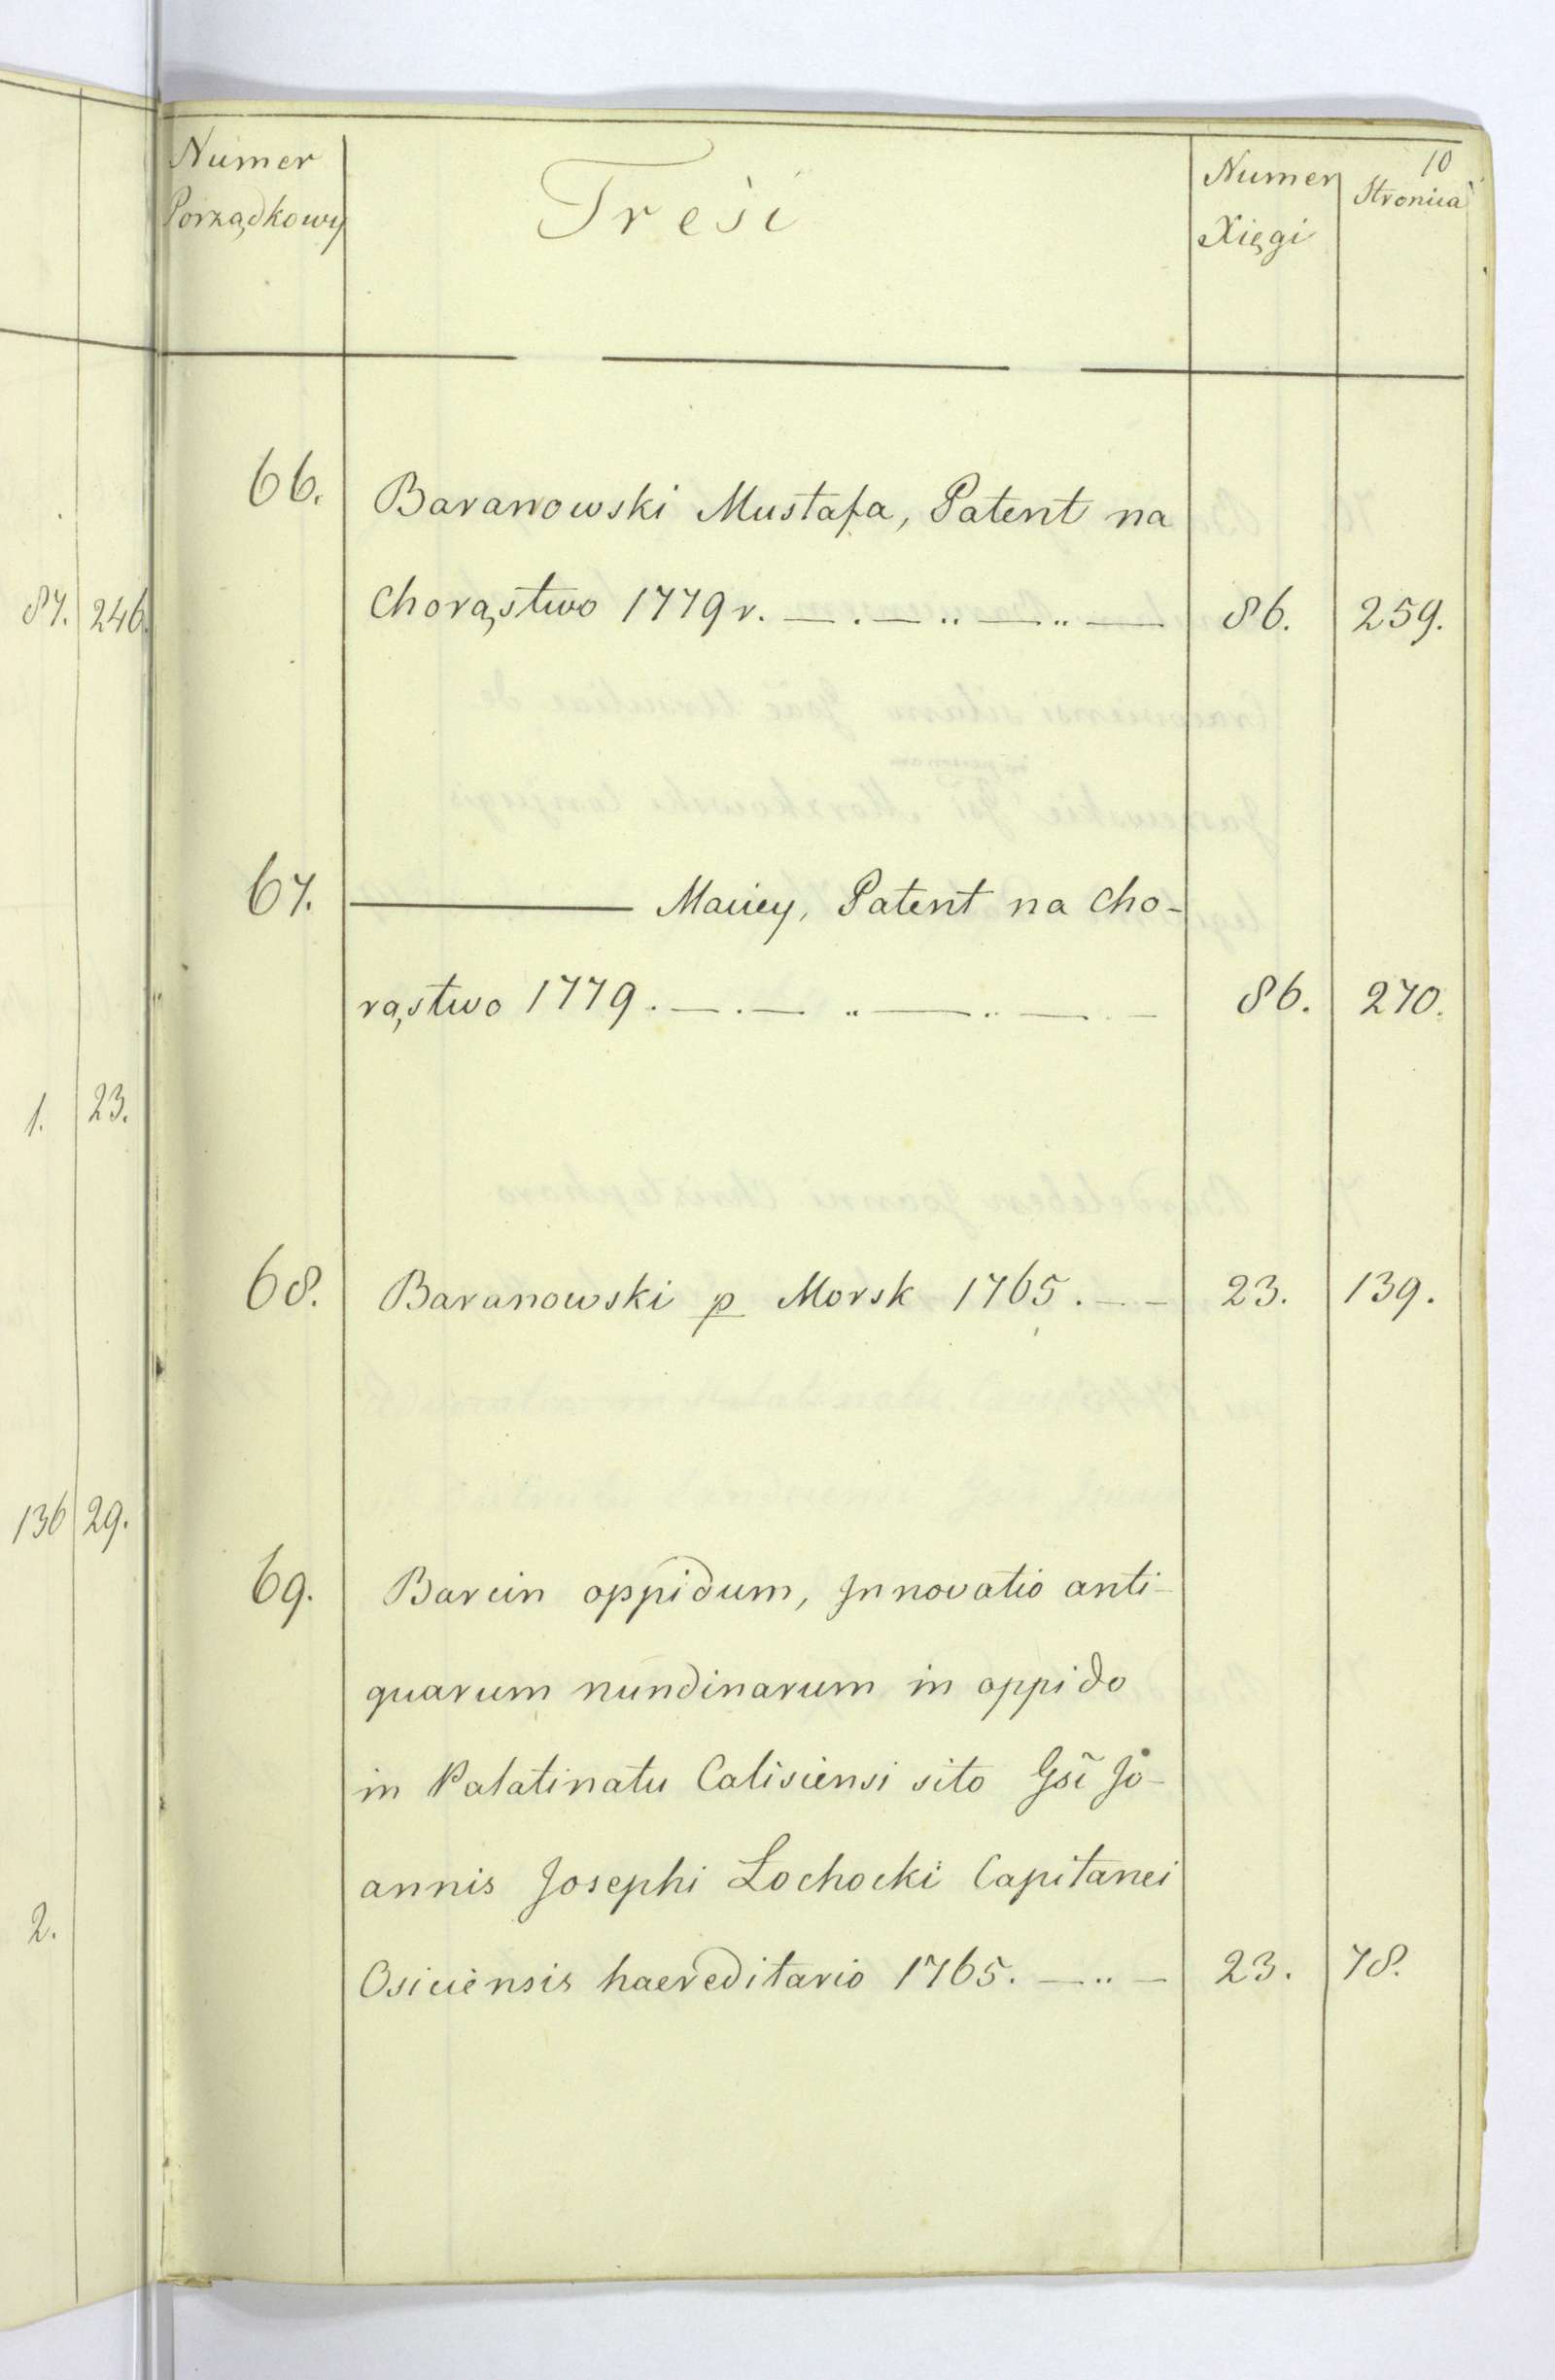 87. 246.
1. 23.
136 29.
2.
10
Numer Porządkowy Treść Numer Xięgi Stronica
66. Baranowski Mustafa, Patent na
Chorąstwo 1779 r. — . — .. — .. — 86. 259.
67. ——— Maciey, Patent na Cho-
rąstwo 1779. — . — .. — .. — . — 86. 270.
68. Baranowski p Morsk 1765. — — 23. 139.
69. Barcin oppidum, Innovatio anti-
quarum nundinarum in oppido
in Palatinatu Calisiensi sito Gsi Jo-
annis Josephi Lochocki Capitanei
Osiciensis haereditario 1765. — .. — 23. 78.